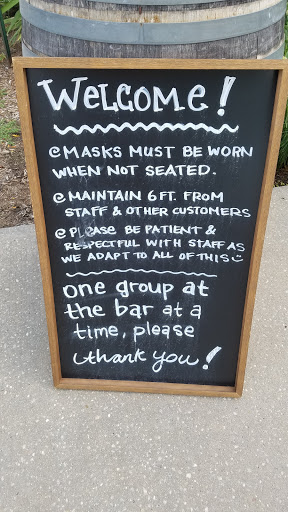 Welcome!
@ MASKS MUST BE WORN
WHEN NOT SEATED.
@ MAINTAIN 6 FT. FROM
STAFF & OTHER CUSTOMERS
@ PLEASE BE PATIENT &
RESPECTFUL WITH STAFF AS
WE ADAPT TO ALL OF THIS☺
one group at
the bar at a
time, please
thank you!